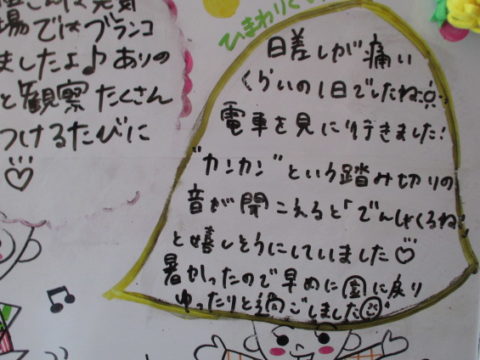 ひまわりぐ
日差しが痛い
くらいの1日でしたね
電車を見に行きました!
"カンカン"という踏み切りの
音が聞こえると「でんしゃくるね」
と嬉しそうにしていました♡
暑かったので早めに園に戻り
ゆったりと過ごしました
場ではブランコ
ましたよ♪ ありの
と観察たくさん
つけるたびに
♡